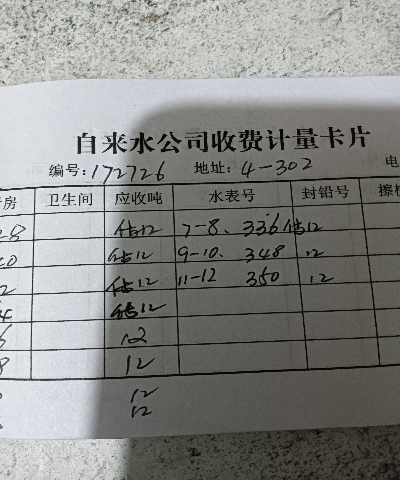 自来水公司收费计量卡片
编号:172726 地址:4-302 电
房 卫生间 应收吨 水表号 封铅号
28 估12 7-8、336 估12
20 估12 9-10、348 12
2 估12 11-12 350 12
4 估12
12
8 12
12
12